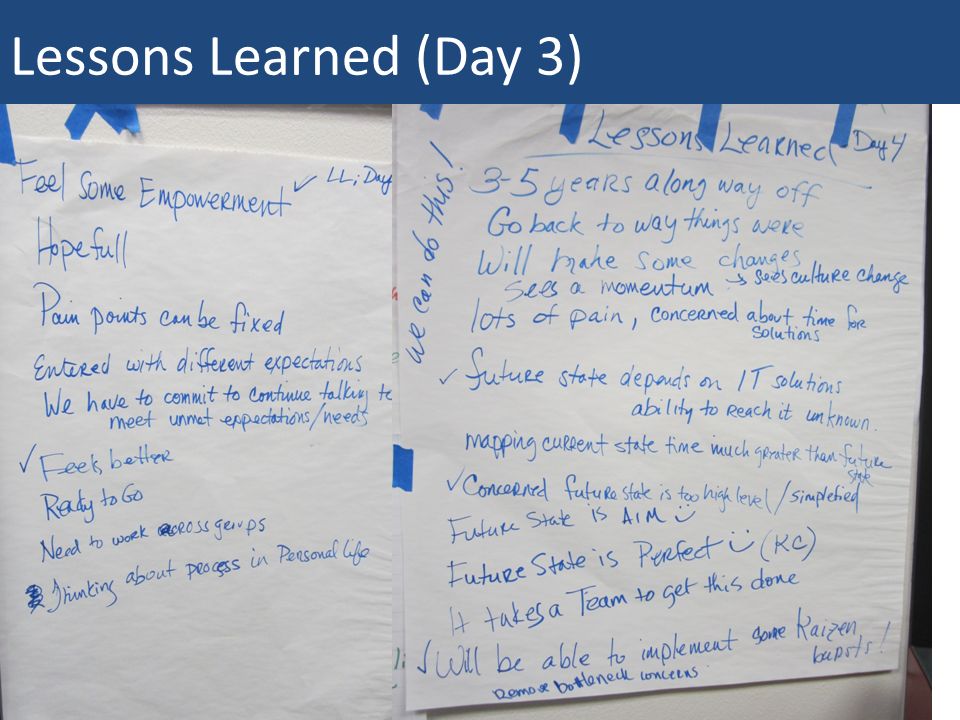 Lessons Learned (Day 3)
Feel Some Empowerment ✓ LL; Day
Hopefull
Pain points can be fixed
Entered with different expectations
We have to commit to continue talking to
meet unmet expectations/needs
✓ Feels better
Ready to Go
Need to work across groups
Thinking about process in Personal life
We can do this!
Lessons Learned - Day 4
3-5 years along way off
Go back to way things were
Will make some changes
sees a momentum → sees culture change
lots of pain, concerned about time for
solutions
✓ future state depends on IT solutions
ability to reach it unknown.
mapping current state time much greater than future
state
✓ Concerned future state is too high level/simplified
Future State is AIM
Future State is Perfect (KC)
It takes a Team to get this done
✓ Will be able to implement some Kaizen
bursts!
Remove bottleneck concerns